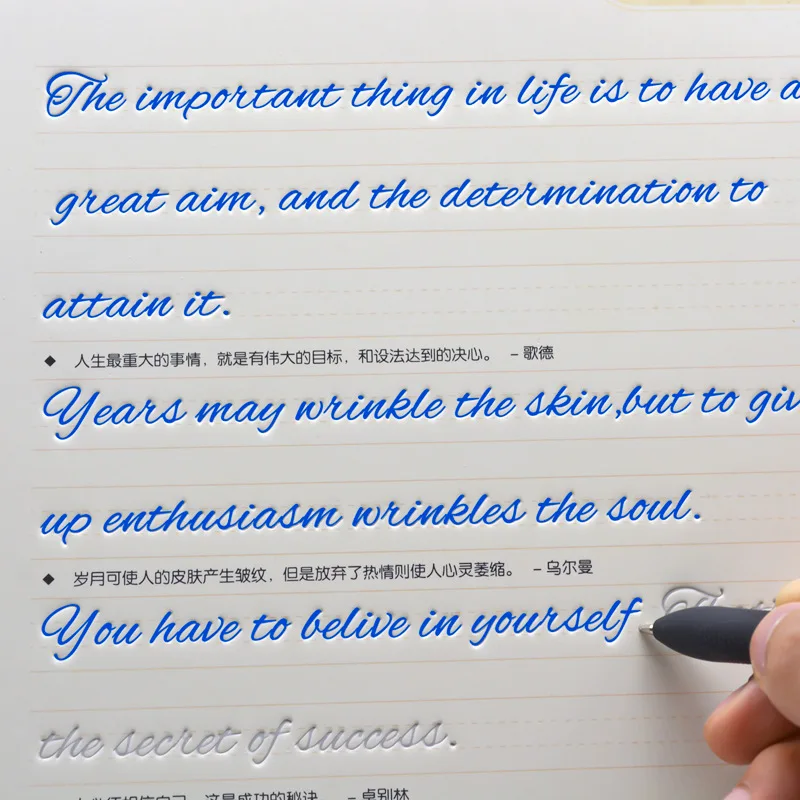 The important thing in life is to have a
great aim, and the determination to
attain it.
◆ 人生最重大的事情，就是有伟大的目标，和设法达到的决心。 – 歌德
Years may wrinkle the skin,but to giv
up enthusiasm wrinkles the soul.
◆ 岁月可使人的皮肤产生皱纹，但是放弃了热情则使人心灵萎缩。 – 乌尔曼
You have to belive in yourself
the secret of success.
这是成功的秘诀。 – 卓别林